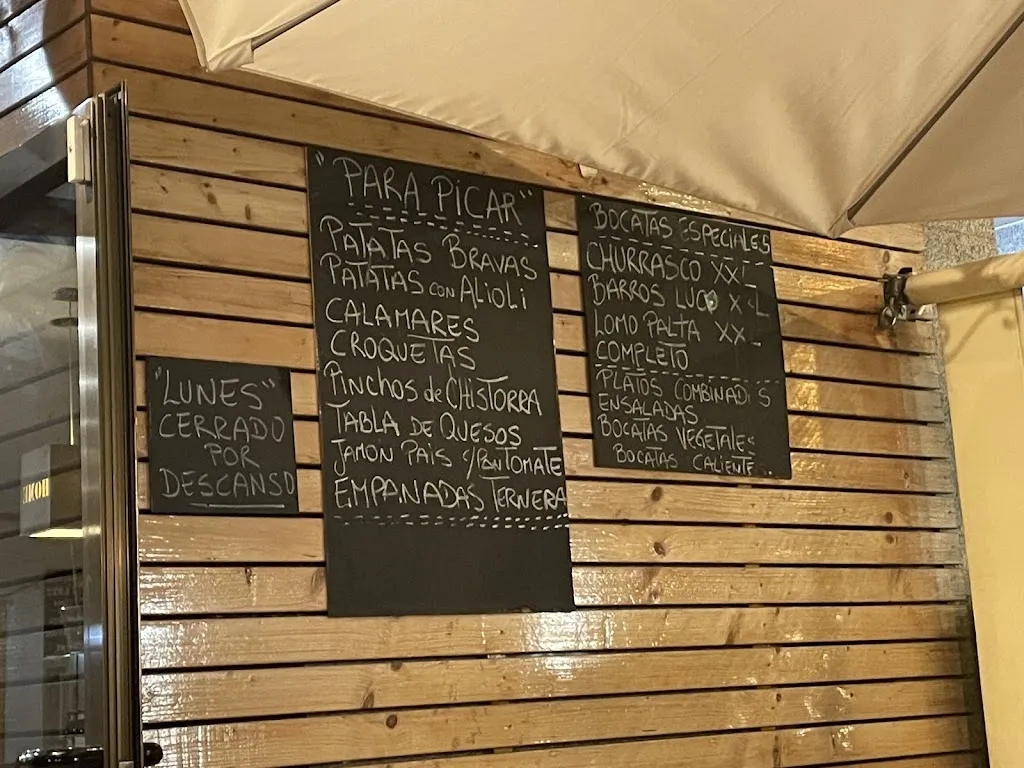 "LUNES"
CERRADO
POR
DESCANSO
"PARA PICAR"
PATATAS BRAVAS
PATATAS CON ALIOLI
CALAMARES
CROQUETAS
PINCHOS de CHISTORRA
TABLA DE QUESOS
JAMON PAIS C/PAN TOMATE
EMPANADAS TERNERA
BOCATAS ESPECIALES
CHURRASCO XXL
BARROS LUCO XXL
LOMO PALTA XXL
COMPLETO
PLATOS COMBINADOS
ENSALADAS
BOCATAS VEGETALES
BOCATAS CALIENTE